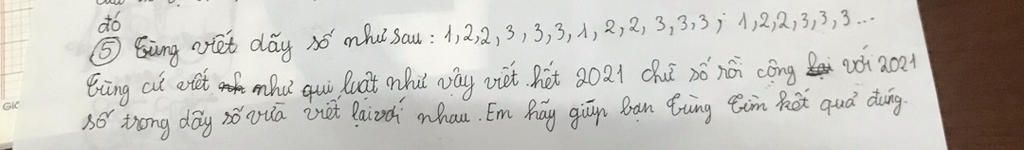 đó
⑤ Tùng viết dãy số như sau : 1,2,2,3,3,3,1,2,2,3,3,3; 1,2,2,3,3,3...
Tùng cứ viết như qui luật như vậy viết hết 2021 chữ số rồi cộng với 2021
số trong dãy số vừa viết lại với nhau. Em hãy giúp bạn Tùng tìm kết quả đúng.